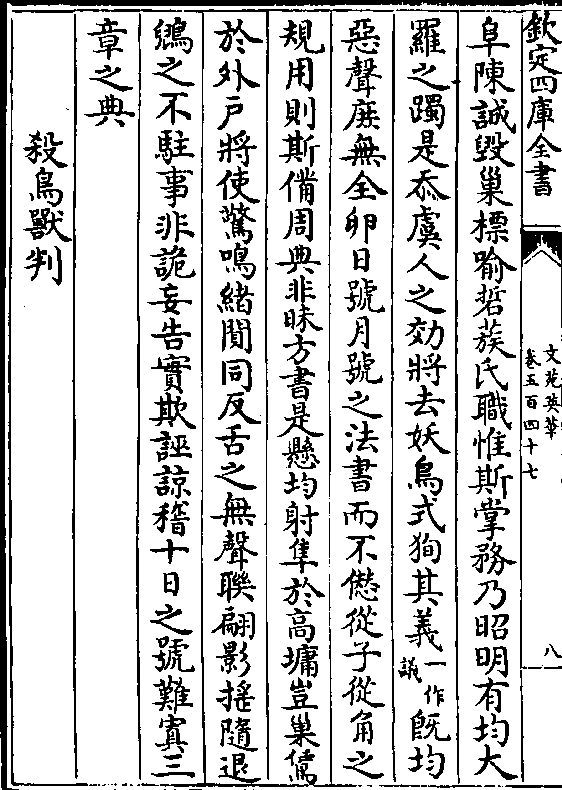 欽定四庫全書
文苑英華
卷五百四十七
八
阜陳誠毀巢標喻硩蔟氏職惟斯掌務乃昭明有均大
羅之躅是忝虞人之効將去妖鳥式狥其義一作議既均
惡聲庶無全卵日號月號之法書而不愆從子從角之
規用則斯備周典非昧方書是懸均射隼於高墉豈巢鷰
於外戸將使驚鳴緒閴同反舌之無聲聯翩影摇隨退
鷁之不駐事非詭妄告實欺誣諒稽十日之號難寘三
章之典
殺鳥獸判